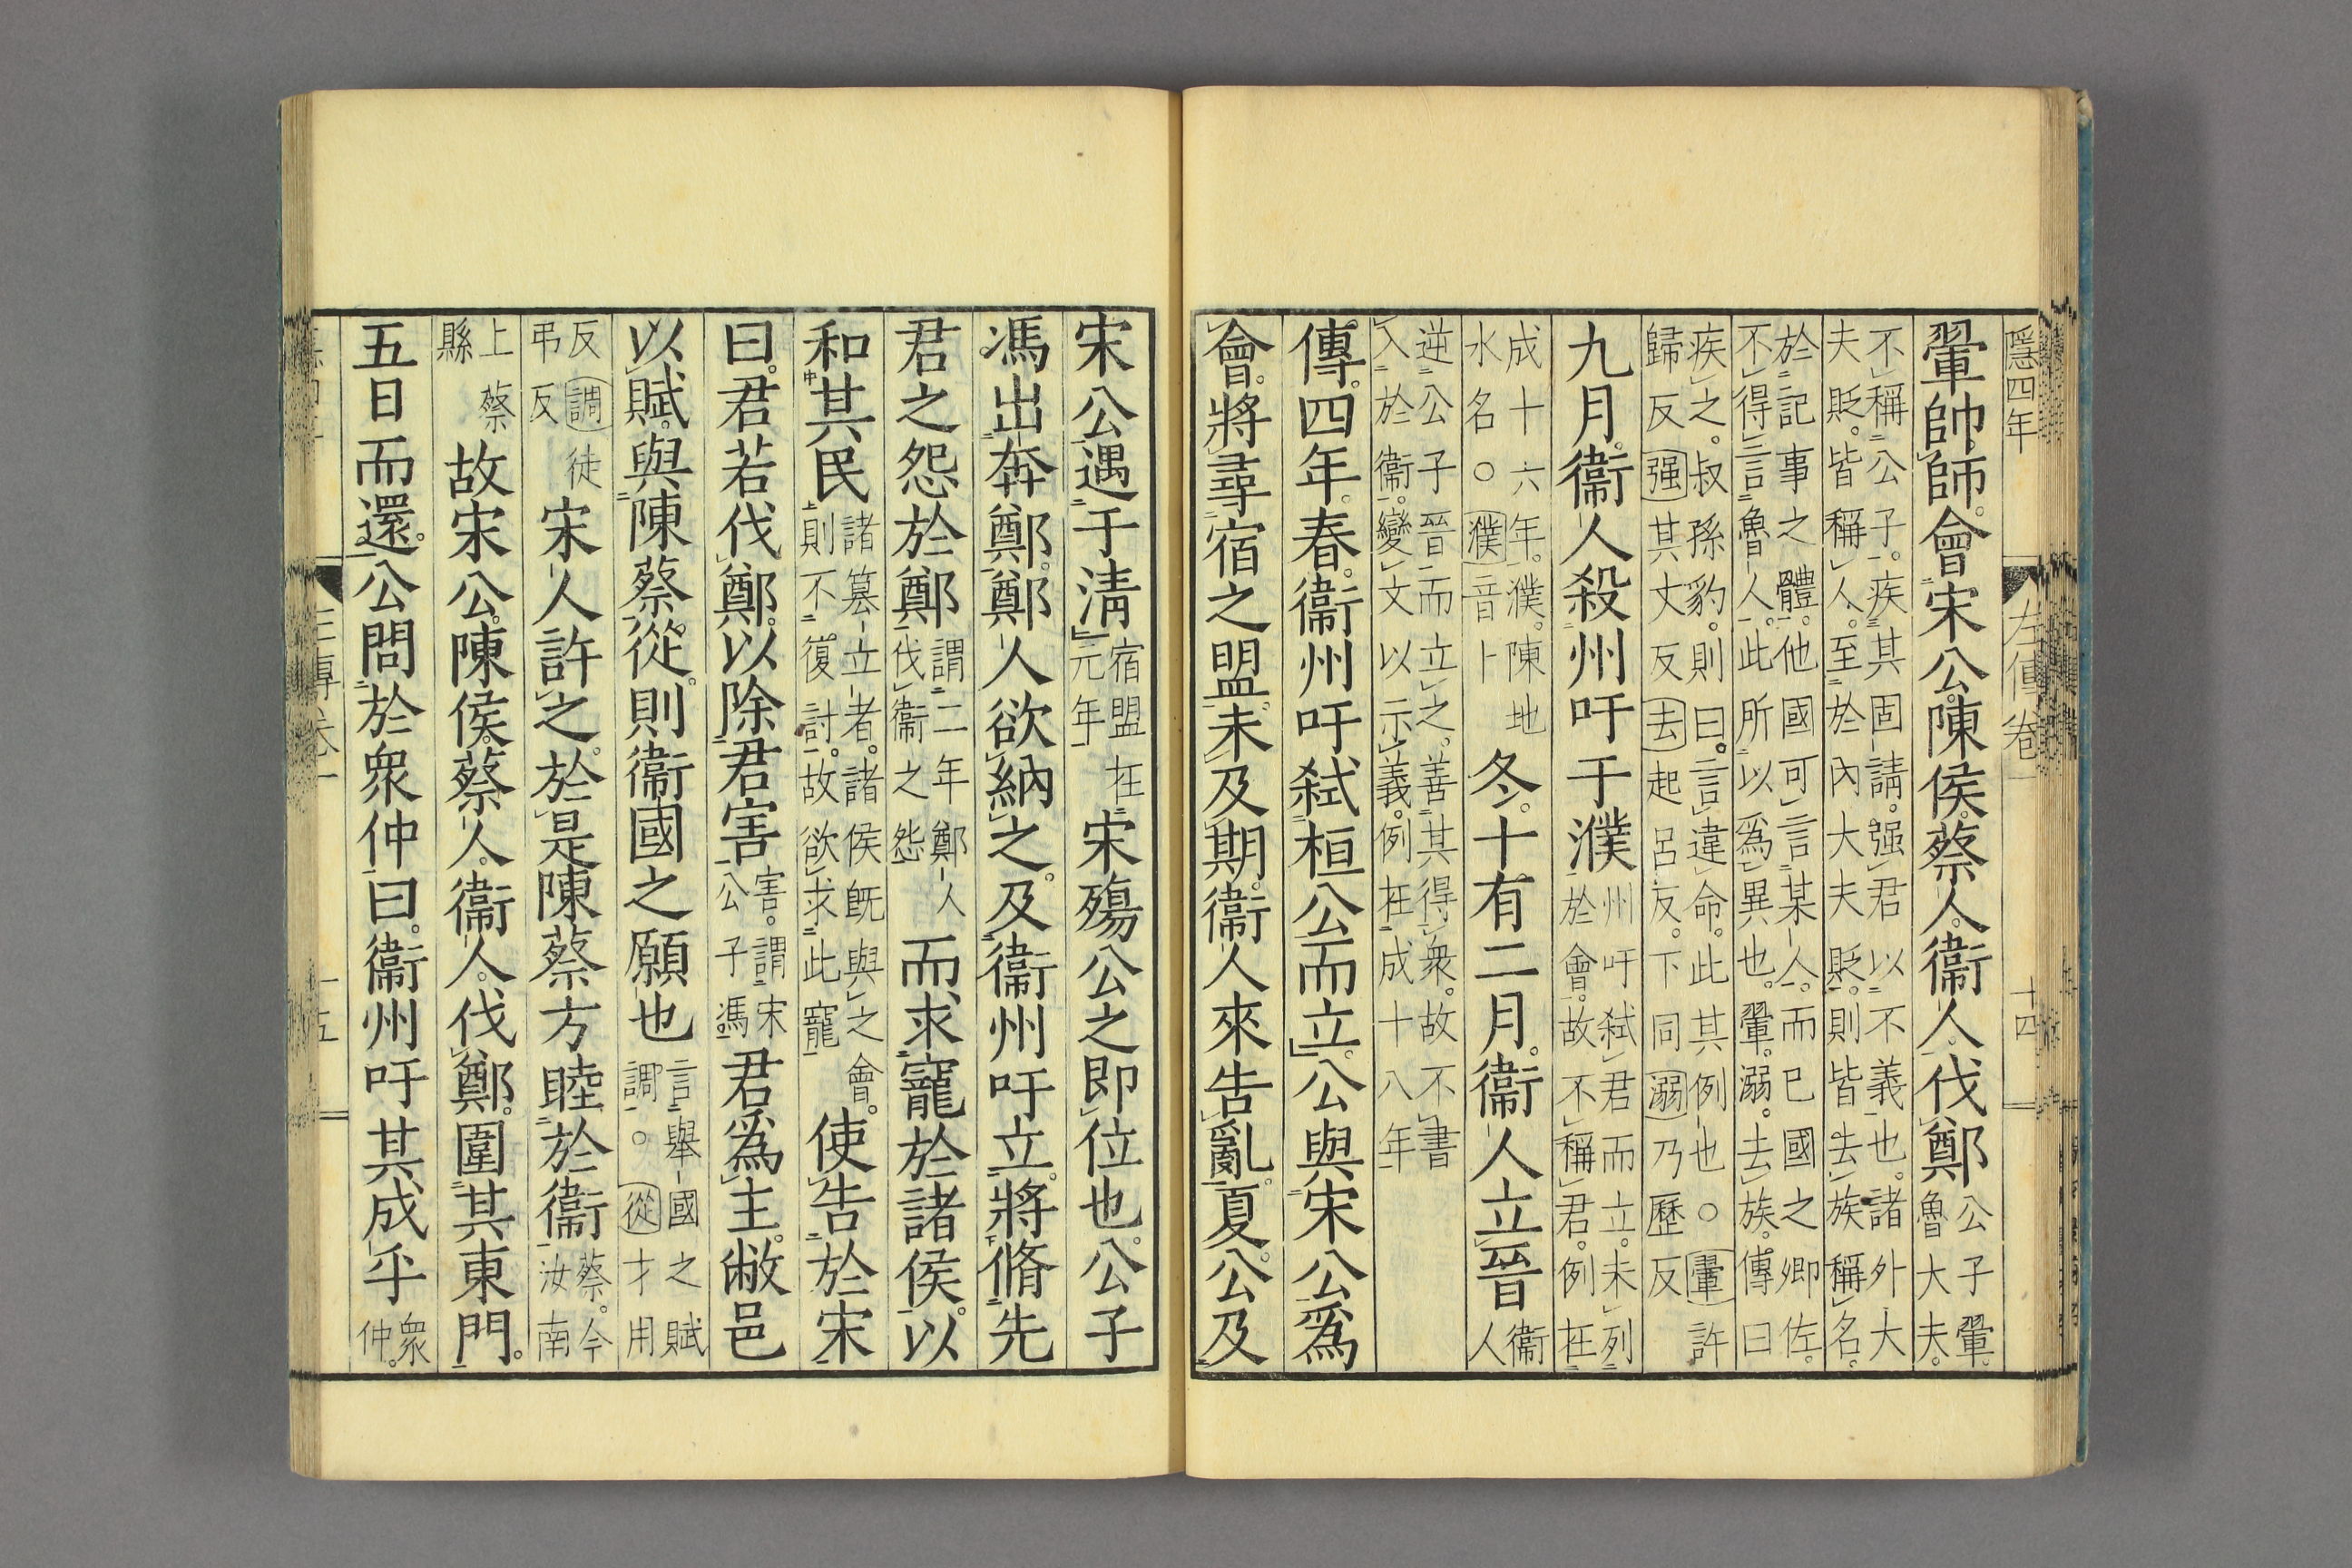 隱四年 左傳卷一 十四
翬帥師會宋公陳侯蔡人衞人伐鄭公子翬魯大夫
不稱公子疾其固請强君以不義也諸外大夫貶皆稱人至於內大夫貶則皆去族稱名
於記事之體他國可言某人而已國之卿佐不得言魯人此所以爲異也翬溺去族傳曰
疾之叔孫豹則曰言違命此其例也○翬許歸反强其丈反去起呂反下同溺乃歷反
九月衞人殺州吁于濮州吁弑君而立未列於會故不稱君例在
成十六年濮陳地水名○濮音卜冬十有二月衞人立晉衞人
逆公子晉而立之善其得衆故不書入於衞變文以示義例在成十八年
傳四年春衞州吁弑桓公而立公與宋公爲
會將尋宿之盟未及期衞人來告亂夏公及
宋公遇于淸宿盟在元年宋殤公之即位也公子
馮出奔鄭鄭人欲納之及衞州吁立將脩先
君之怨於鄭謂二年鄭人伐衞之怨而求寵於諸侯以
和其民諸簒立者諸侯旣與之會則不復討故欲求此寵使告於宋
曰君若伐鄭以除君害害謂宋公子馮君爲主敝邑
以賦與陳蔡從則衞國之願也言舉國之賦調○從才用
反調徒弔反宋人許之於是陳蔡方睦於衞蔡今汝南
上蔡縣故宋公陳侯蔡人衞人伐鄭圍其東門
五日而還公問於衆仲曰衞州吁其成乎衆仲